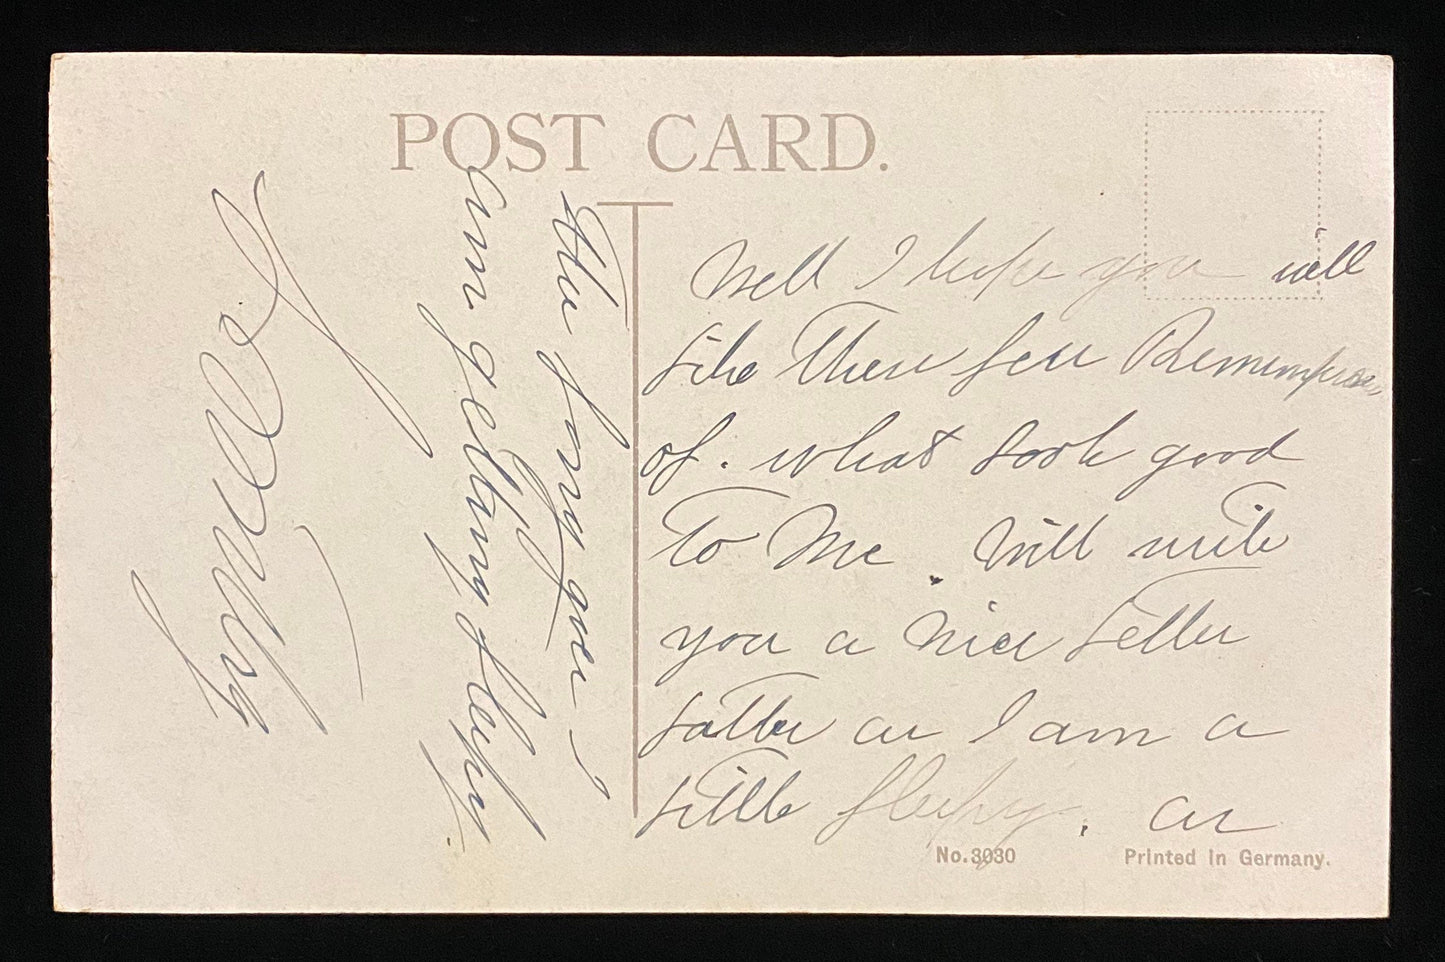 POST CARD.
Well I hope you will
like These few
of. what look good
To Me. Will write
you a Nice Letter
latter as I am a
little sleepy. as
the foxy goer I
am getting sleepy.
No. 3030
Printed in Germany.